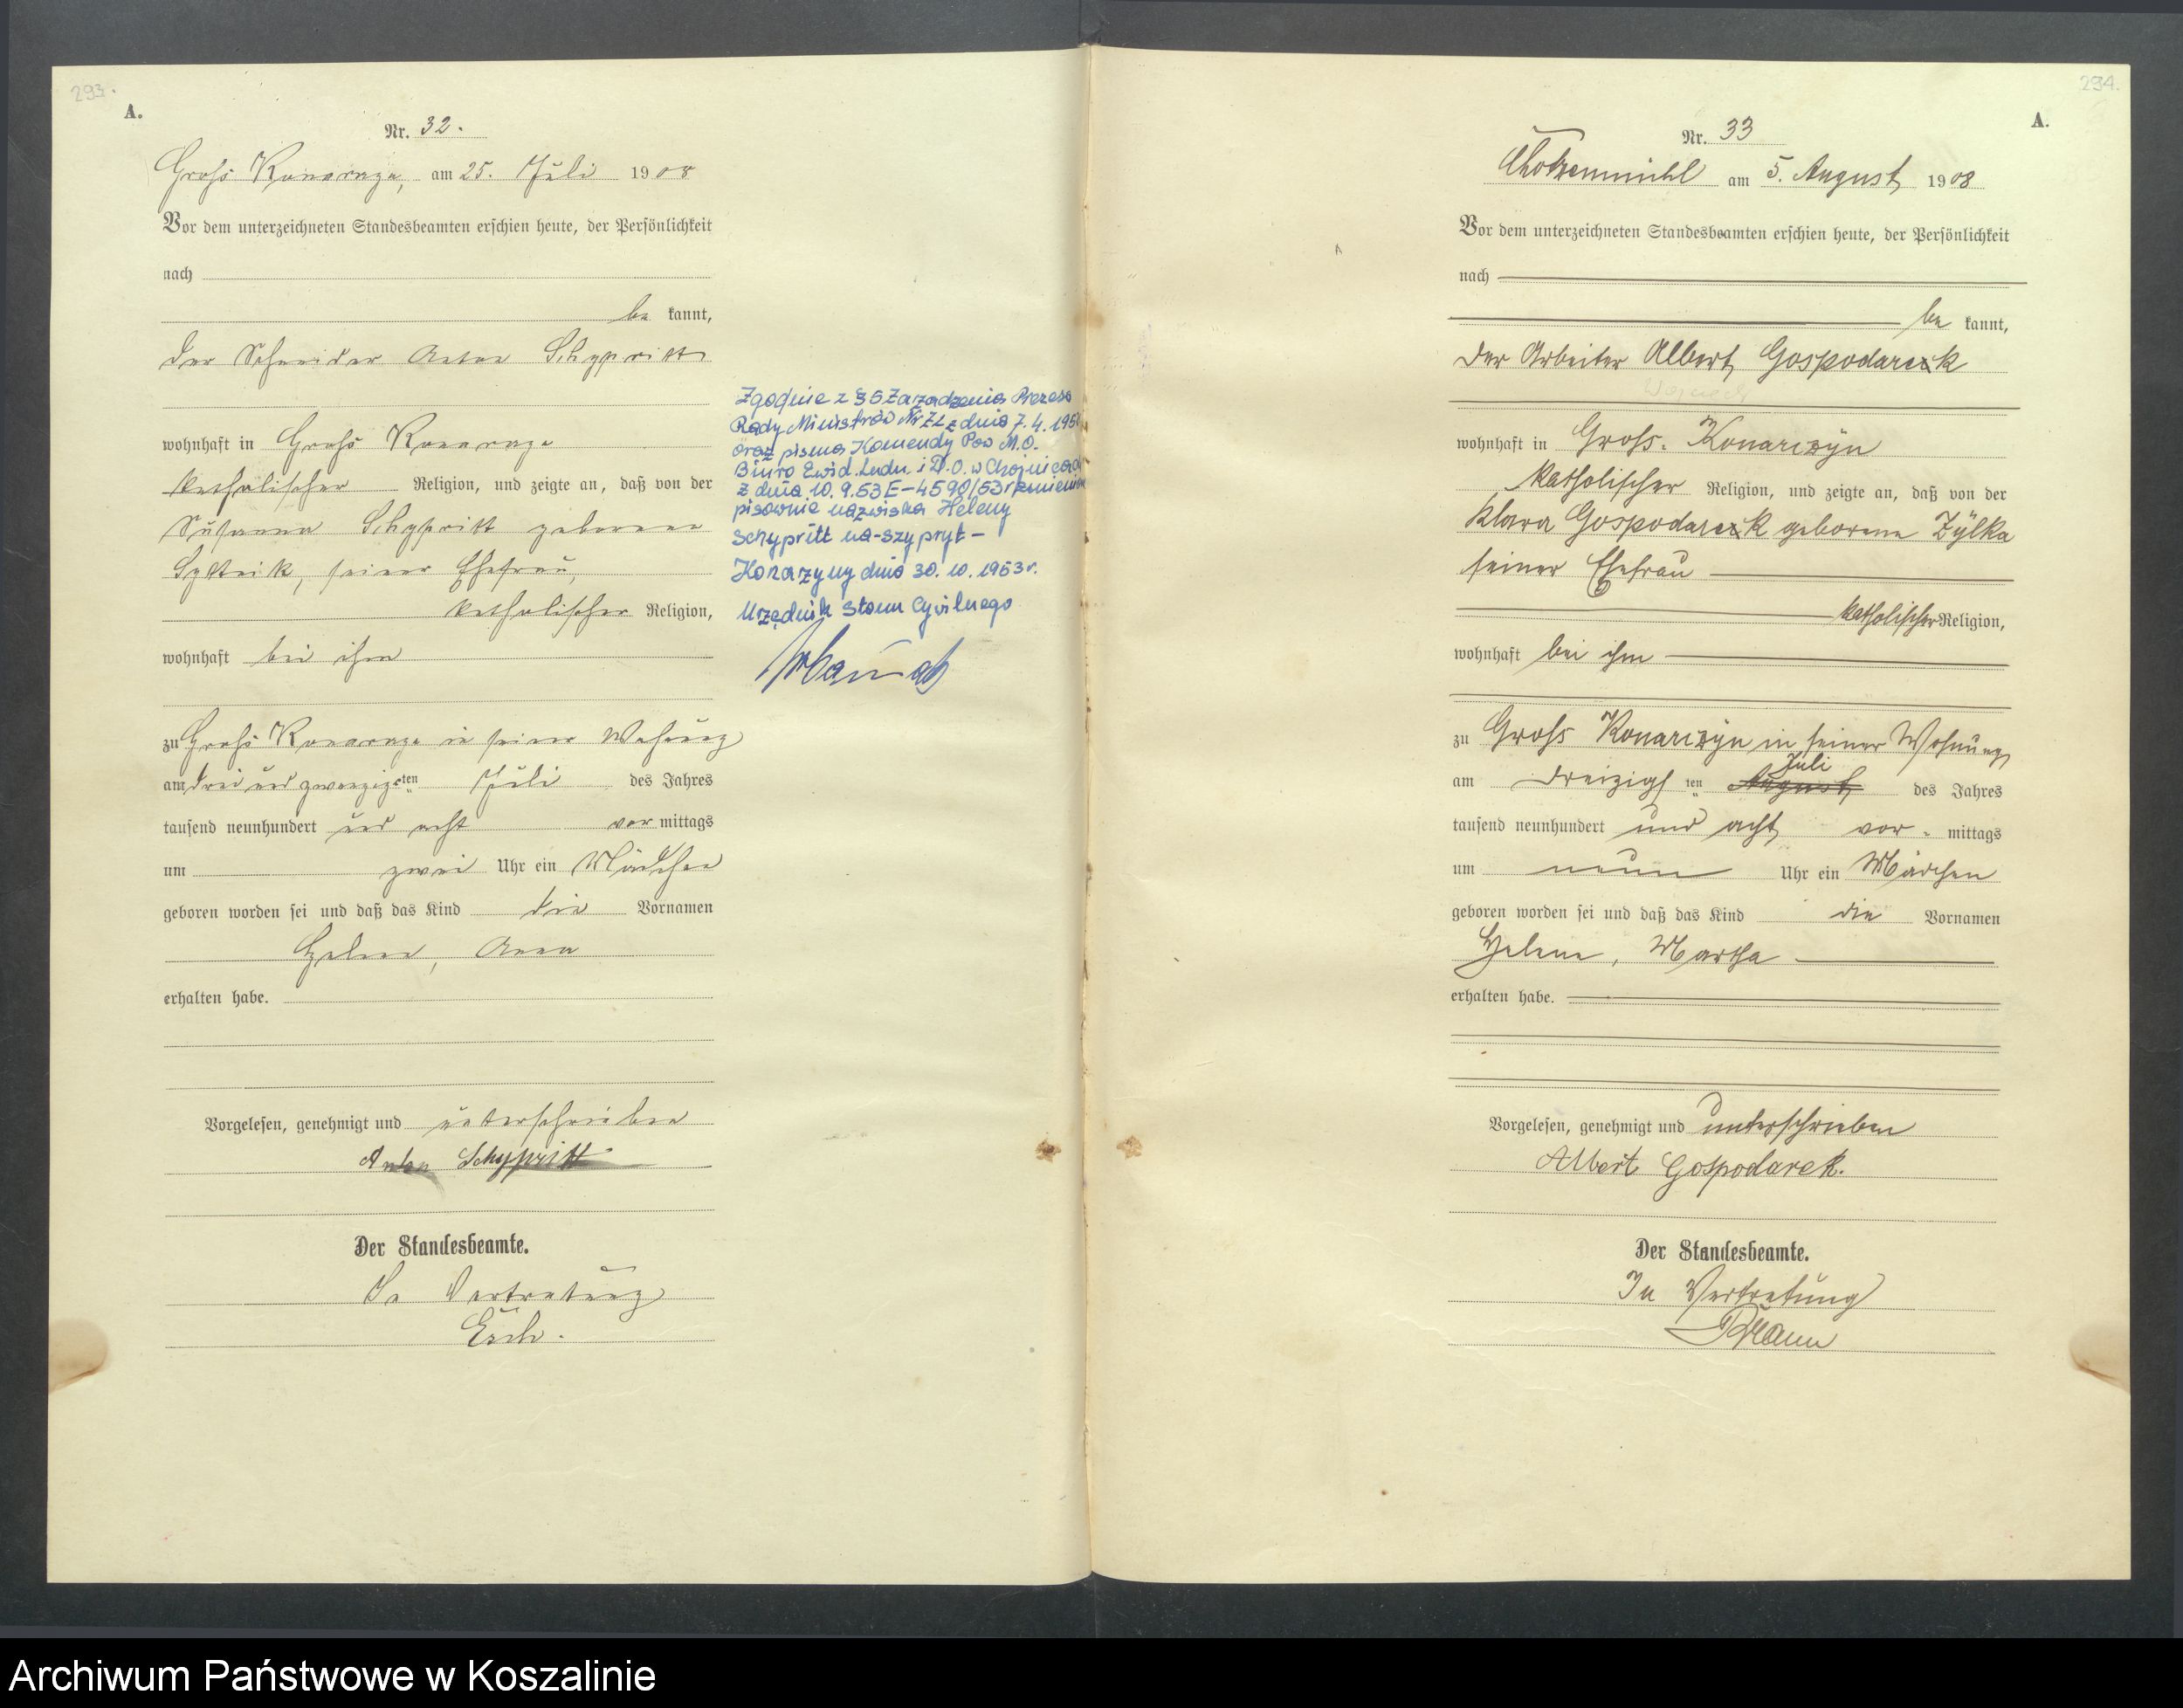 293.
A.
Nr. 32.
Groß Konarzyn, am 25. Juli 1908
Vor dem unterzeichneten Standesbeamten erschien heute, der Persönlichkeit
nach
be kannt,
der Schneider Anton Schypritt
wohnhaft in Groß Konarzyn
katholischer Religion, und zeigte an, daß von der
Susanna Schypritt geborene
seiner Ehefrau,
katholischer Religion,
wohnhaft bei ihm
zu Groß Konarzyn in seiner Wohnung
am drei und zwanzigsten Juli des Jahres
tausend neunhundert und acht vor mittags
um zwei Uhr ein Mädchen
geboren worden sei und daß das Kind die Vornamen
Helene, Anna
erhalten habe.
Vorgelesen, genehmigt und unterschrieben
Anton Schypritt
Der Standesbeamte.
In Vertretung
Zgodnie z § 6 Zarządzenia Prezesa
Rady Ministrów Nr ZL z dnia 7.4.195
oraz pisma Komendy Pow M.O.
Biuro Ewid. Ludn. i D.O. w Chojnicach
z dnia 10.9.53 E-4590/53r zmieniam
pisownie nazwiska Heleny
Schypritt na-szypryt-
Konarzyny dnia 30.10.1953r.
Urzędnik Stanu Cywilnego
294.
A.
Nr. 33
Chotzenmühl am 5. August 1908
Vor dem unterzeichneten Standesbeamten erschien heute, der Persönlichkeit
nach
be kannt,
der Arbeiter Albert Gospodarek
wohnhaft in Groß-Konarczyn
katholischer Religion, und zeigte an, daß von der
Klara Gospodarek geborene Zylka
seiner Ehefrau
katholischer Religion,
wohnhaft bei ihm
zu Groß Konarczyn in seiner Wohnung
Juli
am dreizigsten August des Jahres
tausend neunhundert und acht vor mittags
um neun Uhr ein Mädchen
geboren worden sei und daß das Kind die Vornamen
Helene, Martha
erhalten habe.
Vorgelesen, genehmigt und unterschrieben
Albert Gospodarek.
Der Standesbeamte.
In Vertretung
Archiwum Państwowe w Koszalinie